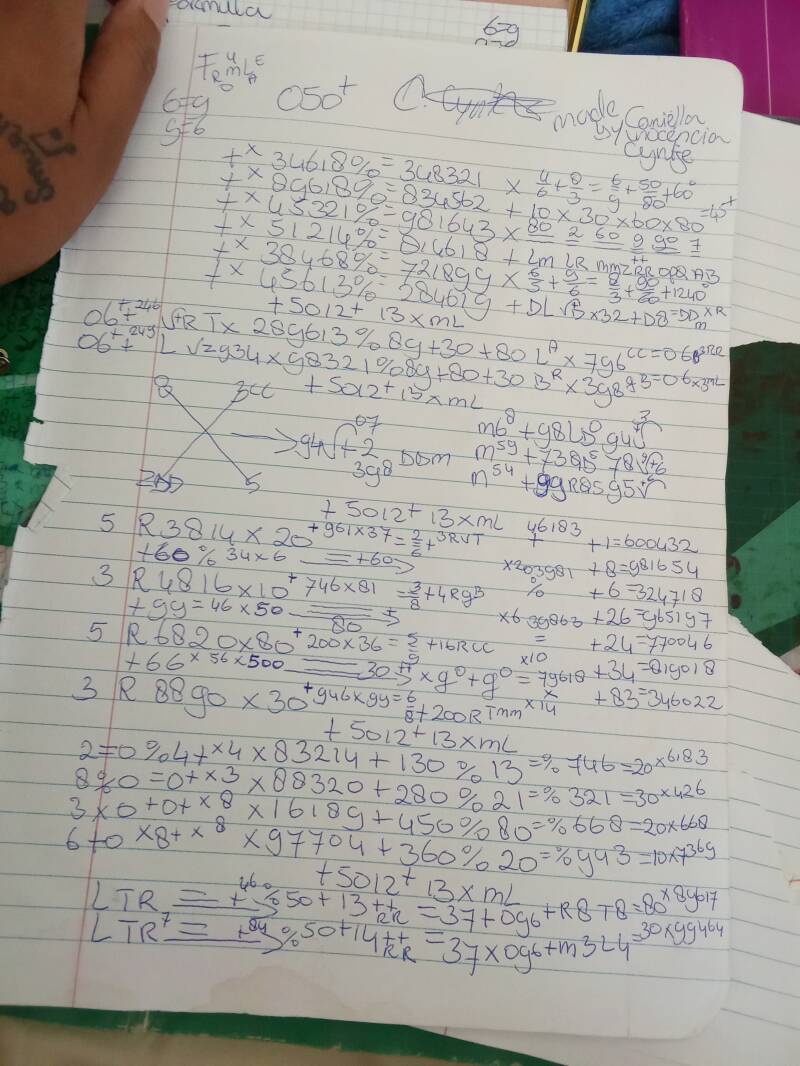 Formula
6=g
FORMULAE
6=g
g=6
050⁺
made by Camiella Inocencia Cyntje
+ˣ 34618% = 348321 × 4/6 + 8/3 = 6/g + 50/80 + 60°
+ˣ 89618% = 834562 + 10 × 30 × 60 × 80 = 45⁺
+ˣ 45321% = 981643 × 80 2 60 9 90 7
+ˣ 51214% = 814618 + Lm LR mmz RR op8 AB
+ˣ 38468% = 72189g
+ˣ 45613% = 28461g + DL
+5012⁺ 13×mL
06⁺⁺²⁴⁶ √+RT× 289613% 8g+30+80 Lᴬ × 7g6ᶜᶜ = 06
06⁺⁺²⁴⁹ L√zg34×g8321% 8g+80+30 Bᴿ × 3g8
+5012⁺ 13×mL
8 3cc
g4√+2 07
3g8 DDm
m6⁸ + g8LD⁰ g4√ 3
m⁵⁹ + 738D
m⁵⁴ + ggR8S g5√
5
+5012⁺ 13×mL
5 R3814×20⁺ 961×37 = 2/6 + 3RVT
46183 + +1=600432
+60% 34×6 ⟹ +60
×203981 +8=981654
3 R4816×10⁺ 746×81 = 3/8 + 4RgB
% +6=324718
+gg=46×50 80 +
×639863 +26=965197
5 R6820×80⁺ 200×36 = 5/9 + 16Rcc
= +24=770046
+66×56×500 30⁺⁺ × g⁰+g⁰ = 79618 ×10 +34=819018
3 R88g0×30⁺ 946×gg = 6/8 + 200RTmm ×14 +83=346022
+5012⁺ 13×mL
2=0%4+ˣ4×83214+130%13=%746=20ˣ⁶¹⁸³
8%0=0+ˣ3×88320+280%21=%321=30ˣ⁴²⁶
3×0+0+ˣ8×1618g+450%80=%668=20ˣ⁶⁶⁸
6+0ˣ8+ˣ8×97704+360%20=%943=10×7³⁶⁹
+5012⁺ 13×mL
LTR ⟹ +⁴⁶⁰%50+13⁺⁺RR=37+0g6+R8+8=80ˣ⁸⁹⁶¹⁷
LTR⁷ ⟹ +⁸⁴%50+14⁺⁺RR=37×0g6+m3L4=30ˣ⁹⁹⁴⁶⁴